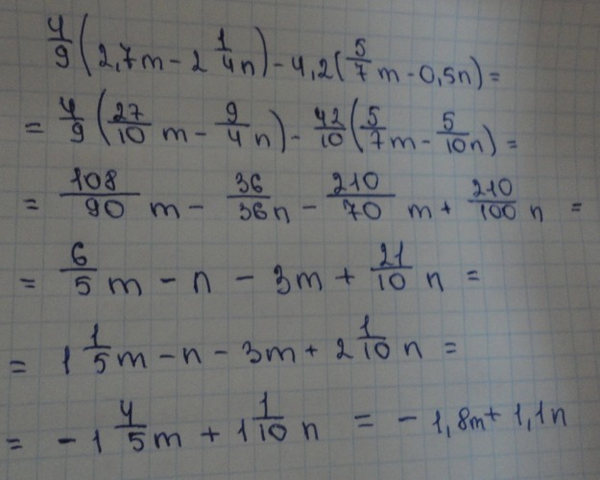 4/9 (2,7m - 2 1/4 n) - 4,2 (5/7 m - 0,5n) =
= 4/9 (27/10 m - 9/4 n) - 42/10 (5/7 m - 5/10 n) =
= 108/90 m - 36/36 n - 210/70 m + 210/100 n =
= 6/5 m - n - 3m + 21/10 n =
= 1 1/5 m - n - 3m + 2 1/10 n =
= - 1 4/5 m + 1 1/10 n = - 1,8m + 1,1n